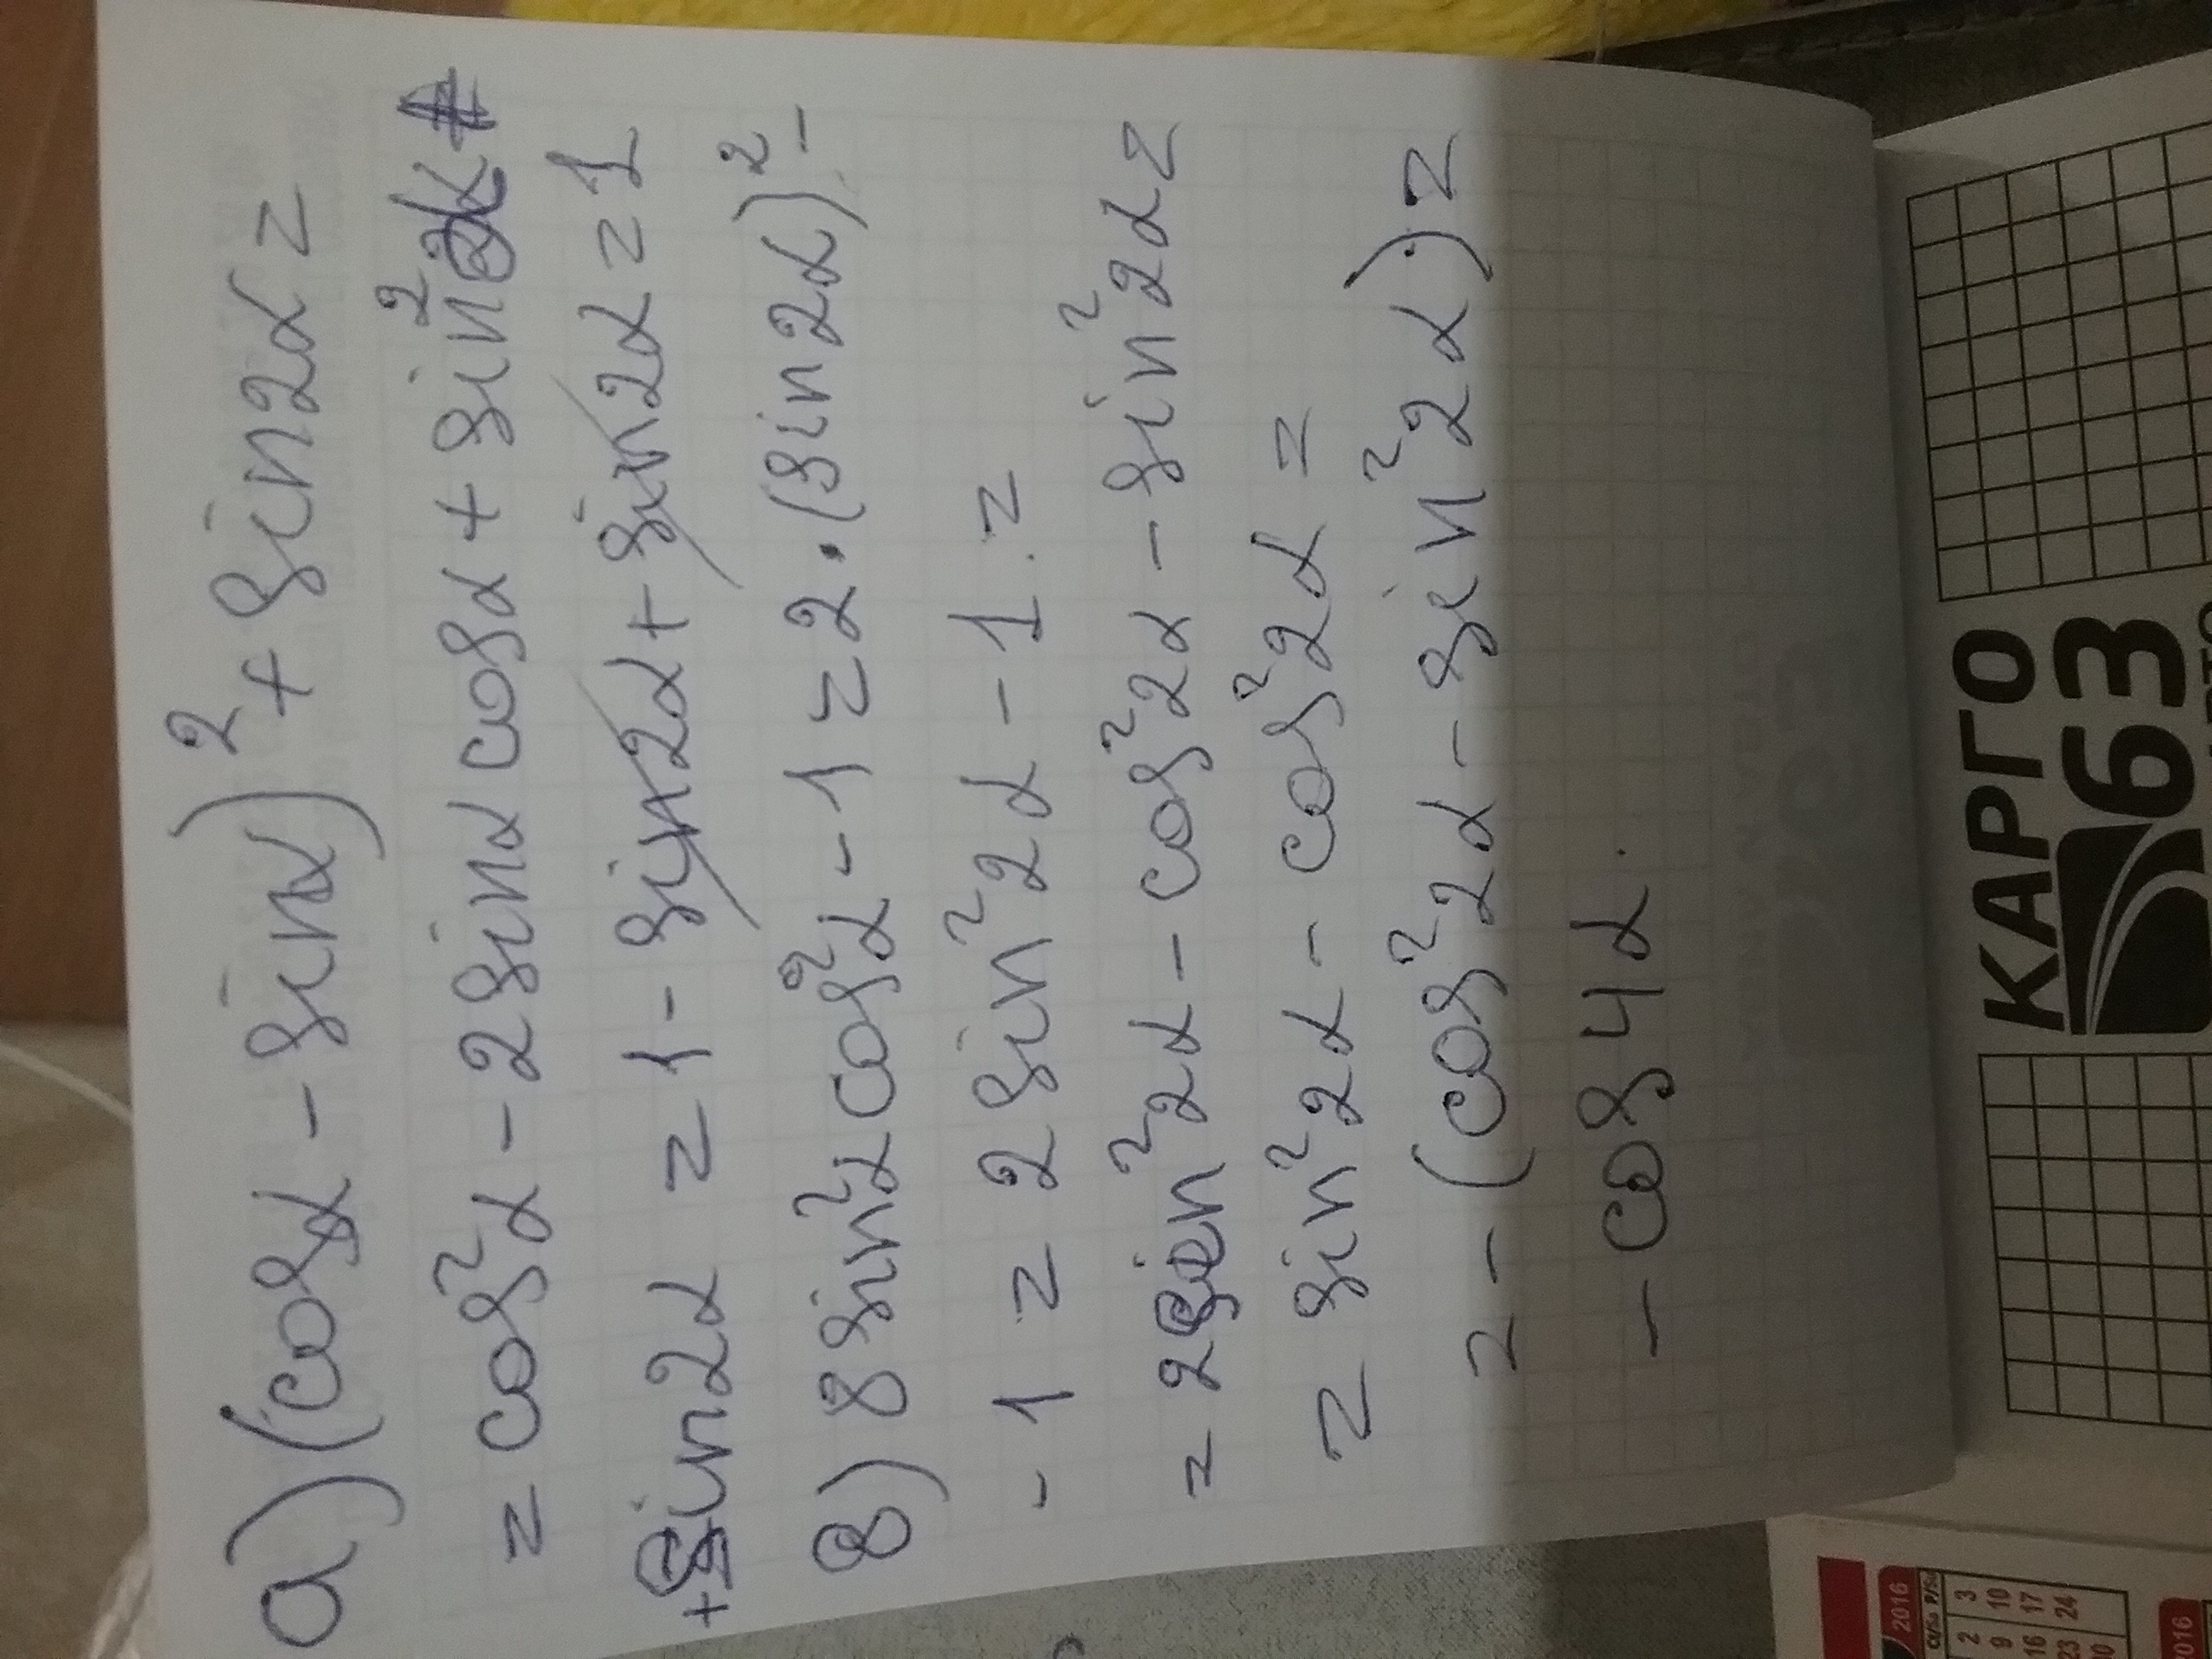 а) (cosα - sinα)² + sin2α =
= cos²α - 2sinα cosα + sin²α +
+ sin2α = 1 - sin2α + sin2α = 1
в) 8sin²α cos²α - 1 = 2·(sin2α)² -
- 1 = 2sin²2α - 1 =
= 2sin²2α - cos²2α - sin²2α =
= sin²2α - cos²2α =
= -(cos²2α - sin²2α) =
- cos4α.
КАРГО
63
2016
2 3
9 10
16 17
23 24
2016